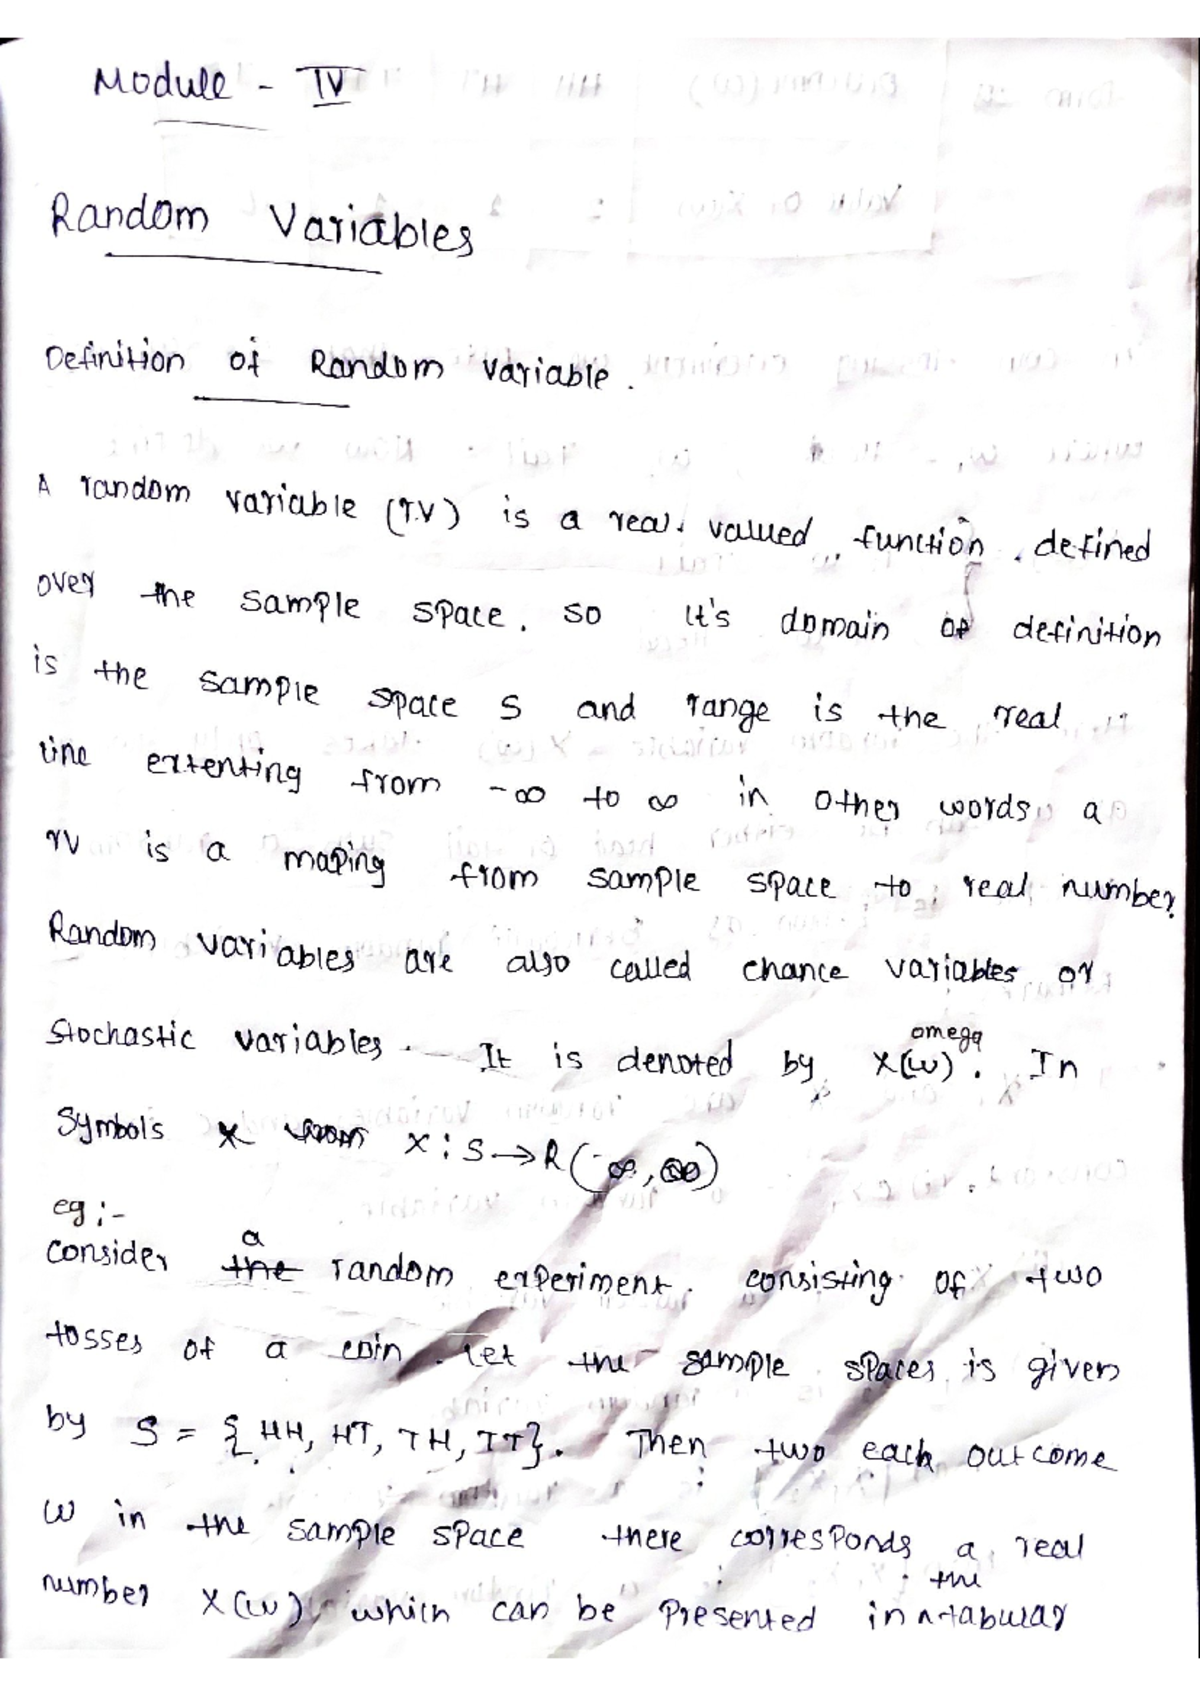 Module - IV
Random Variables
Definition of Random variable.
A random variable (r.v) is a real valued function defined
over the sample space. so it's domain of definition
is the sample space S and range is the real
line extenting from -∞ to ∞ in other words a
rv is a maping from sample space to real number.
Random variables are also called chance variables or
Stochastic variables. It is denoted by X(ω). In
omega
Symbols X : S → R (-∞, ∞)
eg :-
Consider a random experiment. consisting of two
tosses of a coin. Let the sample spaces is given
by S = {HH, HT, TH, TT}. Then two each outcome
ω in the sample space there corresponds a real
number X(ω) which can be presented in the tabular